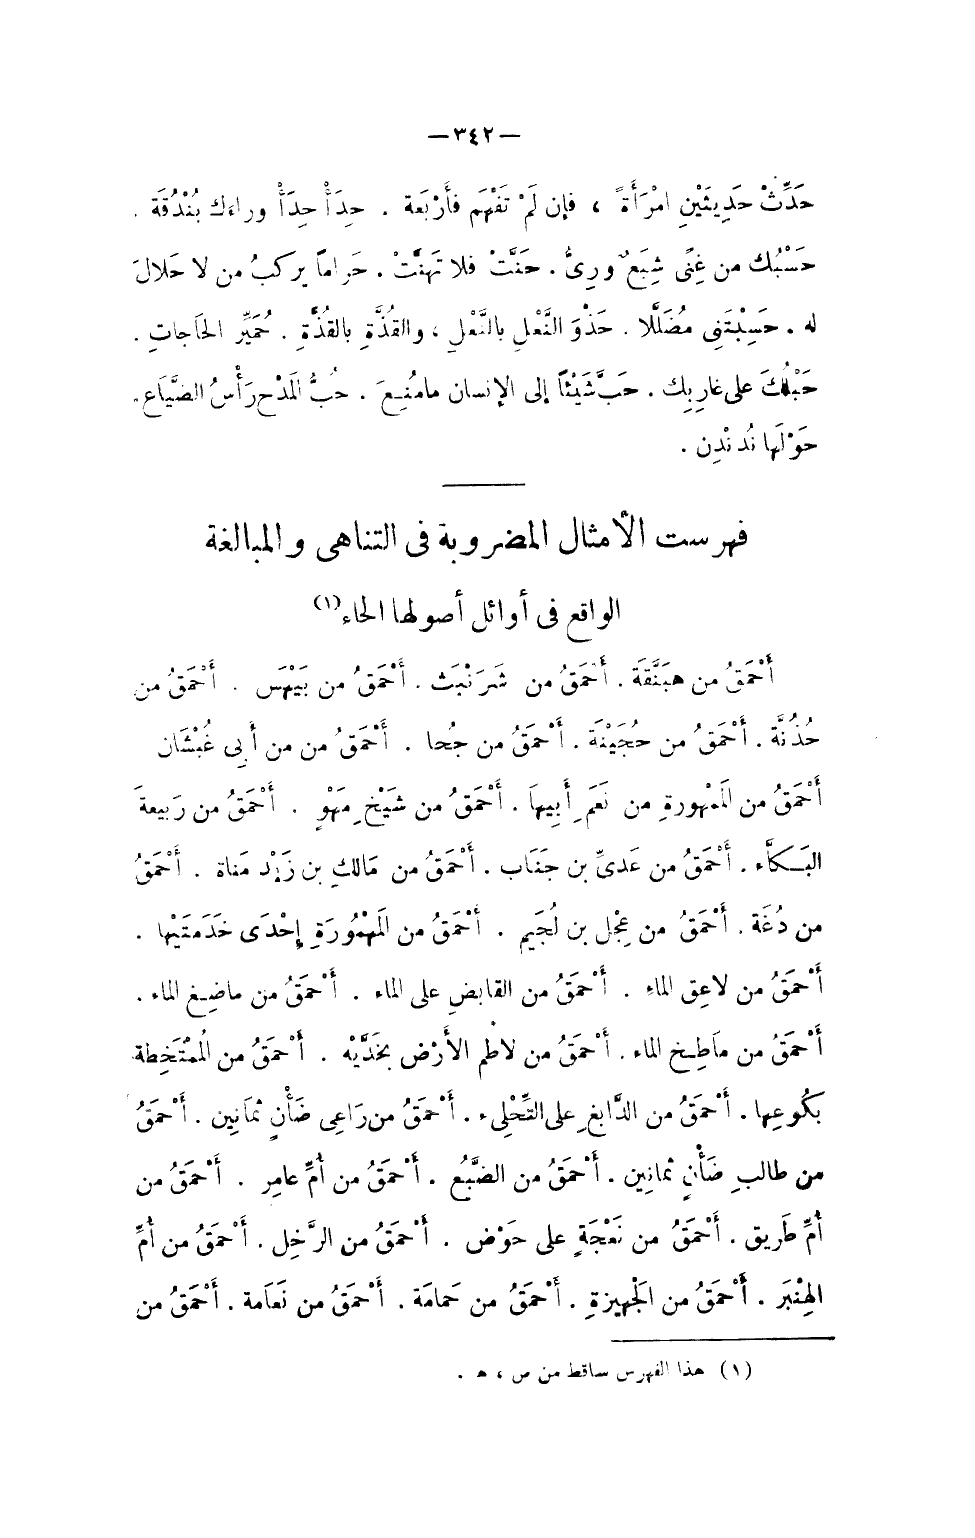 — ٣٤٢ —
حَدِّثْ حَدِيثَيْنِ امْرَأَةً ، فإن لَمْ تَفْهَم فأَرْبَعة . حِدَأْ حِدَأْ وراءك بُنْدُقَة .
حَسْبُك من غِنًى شِبَعٌ ورِىٌّ . حَنَّتْ فلا تَهَنَّتْ . حَراماً يركبُ من لا حَلالَ
له . حَسِبْتَنِى مُضَلَّلا . حَذْوَ النَّعْلِ بالنَّعْلِ ، والقُذَّةِ بالقُذَّةِ . حُمَيِّر الحَاجاتِ .
حَبْلُكَ على غارِبِك . حَبَّ شَيْئاً إلى الإنسان مامُنِعَ . حُبُّ المَدْح رَأْسُ الضَّيَاع .
حَوْلَها نُدَنْدِن .
فهرست الأمثال المضروبة فى التناهى والمبالغة
الواقع فى أوائل أصولها الحاء (١)
أَحْمَقُ من هَبَنَّقَة . أَحْمَقُ من شَرَنْبَث . أَحْمَقُ من بَيْهَس . أَحْمَقُ من
حُذُنَّة . أَحْمَقُ من حُجَيْنَة . أَحْمَقُ من جُحا . أَحْمَقُ من من أَبى غُبْشَان
أَحْمَقُ من المَمْهورةِ من نَعَمِ أَبِيها . أَحْمَقُ من شَيْخِ مَهْوٍ . أَحْمَقُ من رَبيعةَ
البَــكَّاء . أَحْمَقُ من عَدىِّ بن جَنَاب . أَحْمَقُ من مَالكِ بن زَيْد مَناة . أَحْمَقُ
من دُغَة . أَحْمَقُ من عِجْل بن لُجَيم . أَحْمَقُ من المَهْمُورَةِ إِحْدَى خَدَمَتَيْها .
أَحْمَقُ من لاعِق الماءِ . أَحْمَقُ من القابضِ على الماء . أَحْمَقُ من ماضِـغِ الماء .
أَحْمَقُ من ماَطِـخ الماء . أَحْمَقُ من لاطِم الأَرْض بخَدَّيْه . أَحْمَقُ من المُمْتَخِطة
بكُوعِها . أَحْمَقُ من الدَّابغِ على التِّحْلِىء . أَحْمَقُ من رَاعِى ضَأْنٍ ثمَانِين . أَحْمَقُ
من طالبِ ضَأْنٍ ثمانِين . أَحْمَقُ من الضَّبُعِ . أَحْمَقُ من أُمِّ عامِر . أَحْمَقُ من
أُمِّ طَرِيق . أَحْمَقُ من نَعْجَةٍ على حَوْض . أَحْمَقُ من الرَّخِل . أَحْمَقُ من أُمِّ
الهِنْبَر . أَحْمَقُ من الجَهِيزةِ . أَحْمَقُ من حَمامَة . أَحْمَقُ من نَعَامة . أَحْمَقُ من
(١) هذا الفهرس ساقط من ص ، ھ .